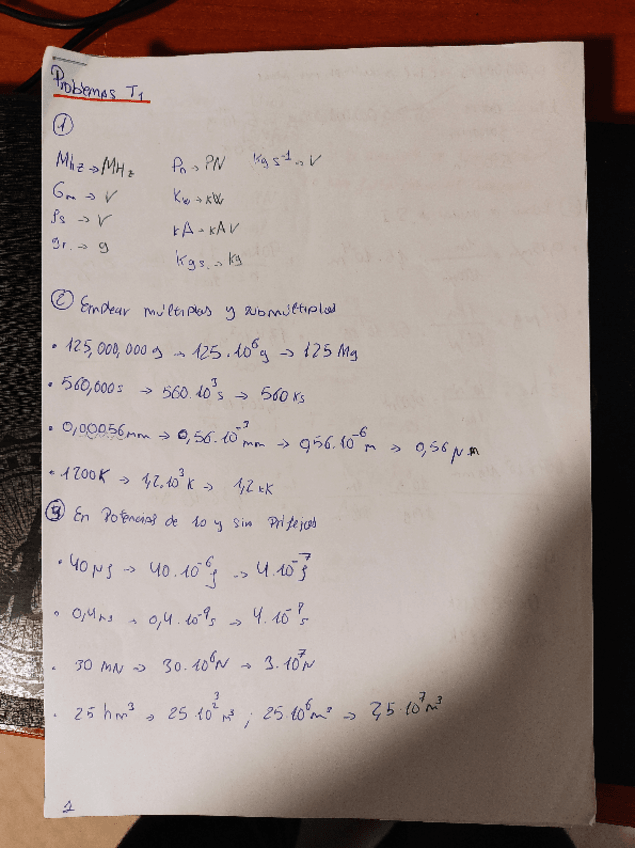 Problemas T1
1
Mhz → MHz Pn → PN kg s⁻¹ → V
Gm → V Kw → kW
fs → V kA → kA V
gr. → g Kgs. → kg
2 Emplear múltiplos y submúltiplos
• 125,000,000 g → 125·10⁶ g → 125 Mg
• 560,000 s → 560·10³ s → 560 Ks
• 0,00056 mm → 0,56·10⁻³ mm → 0,56·10⁻⁶ m → 0,56 μm
• 1200K → 1,2·10³ K → 1,2 kK
En Potencias de 10 y sin Prifejos
• 40 μs → 40·10⁻⁶ → 4·10⁻⁷
• 0,4 ns → 0,4·10⁻⁹ s → 4·10 s
• 30 MN → 30·10⁶ N → 3·10⁷ N
• 25 hm³ → 25 10²³ m³ ; 25·10⁶ m³ → 2,5·10⁷ m³
1